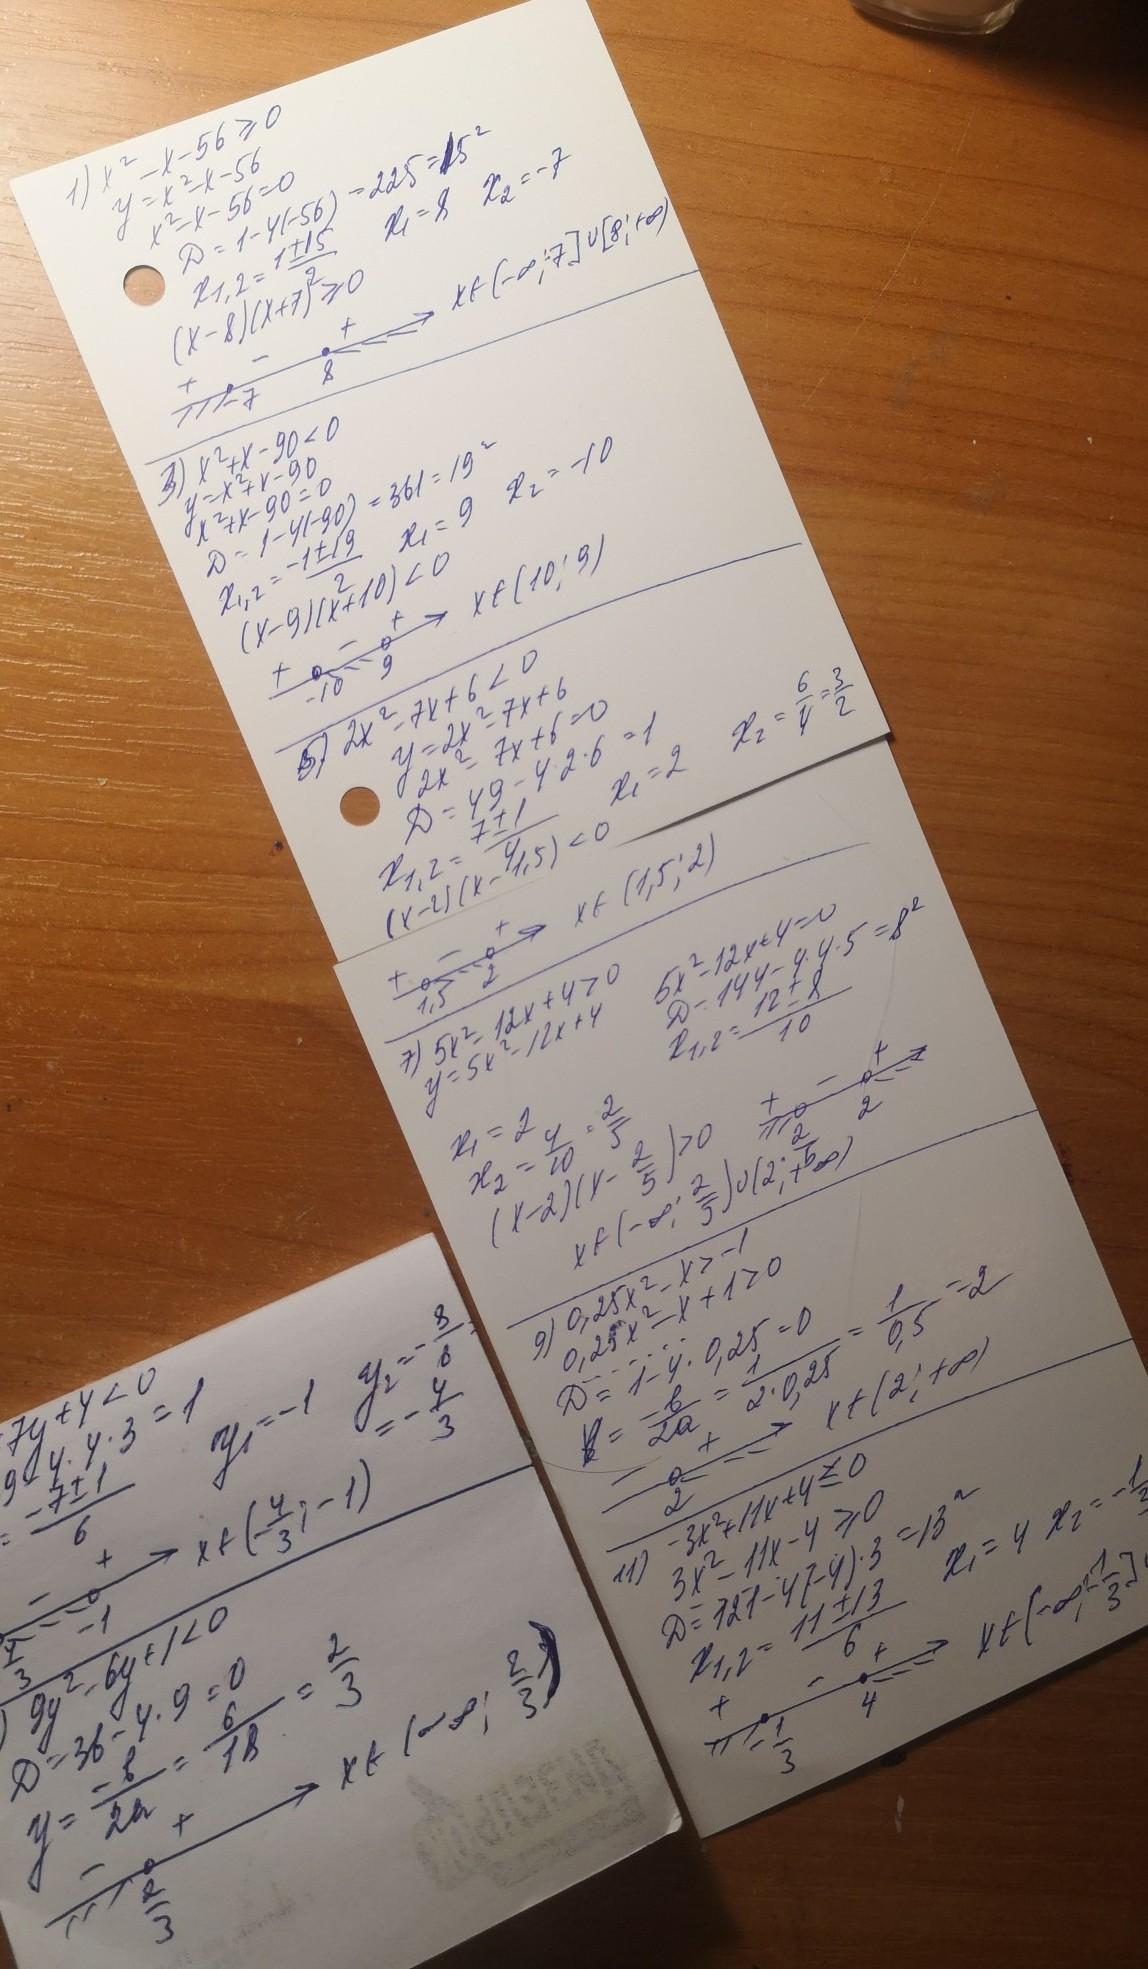 1) x² - x - 56 ⩾ 0
y = x² - x - 56
x² - x - 56 = 0
D = 1 - 4(-56) = 225 = 15²
x₁,₂ = (1 ± 15)/2 x₁ = 8 x₂ = -7
(x - 8)(x + 7) ⩾ 0
+ - + x ∈ (-∞; -7] ∪ [8; +∞)
-7 8
3) x² + x - 90 < 0
y = x² + x - 90
x² + x - 90 = 0
D = 1 - 4(-90) = 361 = 19²
x₁,₂ = (-1 ± 19)/2 x₁ = 9 x₂ = -10
(x - 9)(x + 10) < 0
+ - + x ∈ (10; 9)
-10 9
5) 2x² - 7x + 6 < 0
y = 2x² - 7x + 6
2x² - 7x + 6 = 0
D = 49 - 4·2·6 = 1
x₁,₂ = (7 ± 1)/4 x₁ = 2 x₂ = 6/4 = 3/2
(x - 2)(x - 1,5) < 0
+ - + x ∈ (1,5; 2)
1,5 2
7) 5x² - 12x + 4 > 0 5x² - 12x + 4 = 0
y = 5x² - 12x + 4 D = 144 - 4·4·5 = 8²
x₁,₂ = (12 ± 8)/10
x₁ = 2
x₂ = 4/10 = 2/5
(x - 2)(x - 2/5) > 0 + - +
2/5 2
x ∈ (-∞; 2/5) ∪ (2; +∞)
9) 0,25x² - x > -1
0,25x² - x + 1 > 0
D = 1 - 4·0,25 = 0
= -b/2a = 1/(2·0,25) = 1/0,5 = 2
- + x ∈ (2; +∞)
2
11) -3x² + 11x + 4 ⩽ 0
3x² - 11x - 4 ⩾ 0
D = 121 - 4(-4)·3 = 13²
x₁,₂ = (11 ± 13)/6 x₁ = 4 x₂ = -1/3
+ - + x ∈ (-∞; -1/3] ∪
-1/3 4
7y + 4 < 0
9 - 4·4·3 = 1
= (-7 ± 1)/6 y₁ = -1 y₂ = -8/6 =
= -4/3
- + x ∈ (-4/3; -1)
-1
9y² - 6y + 1 < 0
D = 36 - 4·9 = 0
y = -b/2a = 6/18 = 2/3
- + x ∈ (-∞; 2/3)
2/3